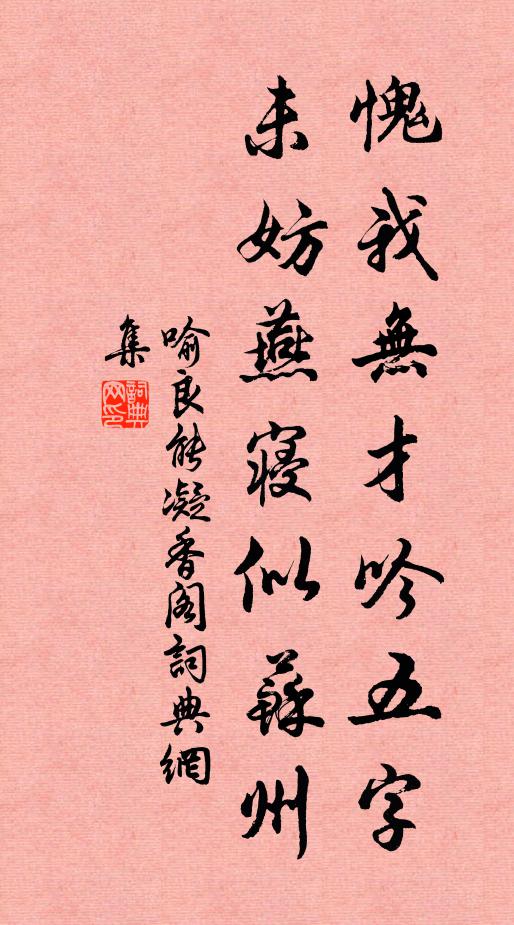 愧我無才吟五字
未妨燕寢似蘇州
喻良能凝香阁詞典網
集
詞典
网印